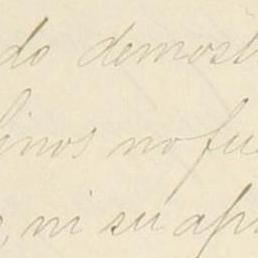 do demost
inos no fue
, ni su apr